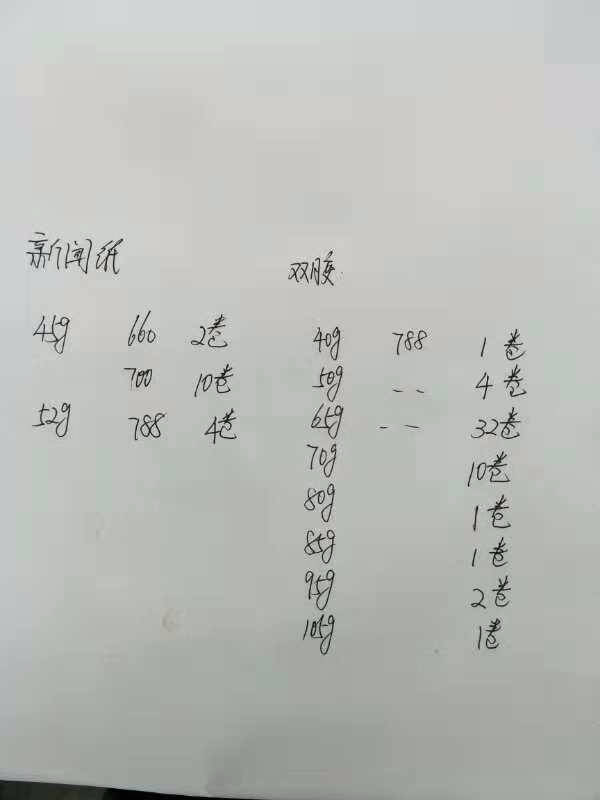 新闻纸
45g 660 2卷
700 10卷
52g 788 4卷
双胶
40g 788 1卷
50g -- 4卷
65g -- 32卷
70g 10卷
80g 1卷
85g 1卷
95g 2卷
105g 1卷